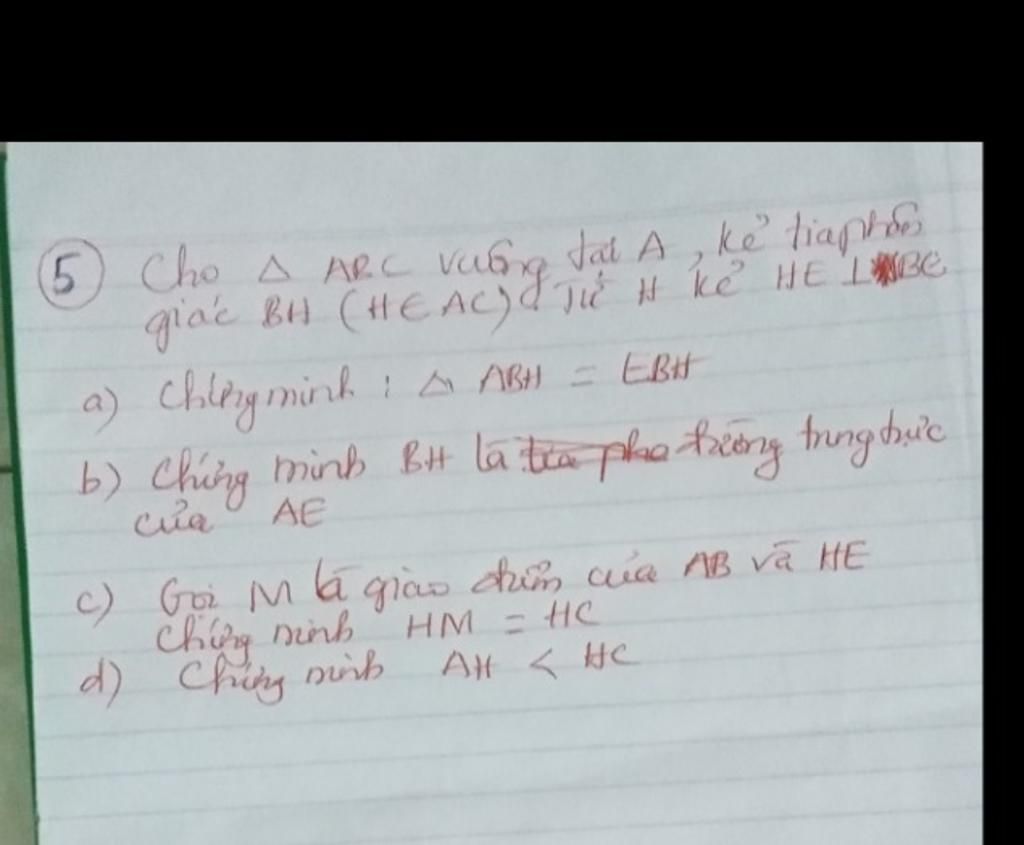 5 Cho △ ABC vuông tại A, kẻ tia phân
giác BH (H ∈ AC) Từ H kẻ HE ⊥ BC
a) Chứng minh : △ ABH = EBH
b) Chứng minh BH là đường trung trực
của AE
c) Gọi M là giao điểm của AB và HE
Chứng minh HM = HC
d) Chứng minh AH < HC